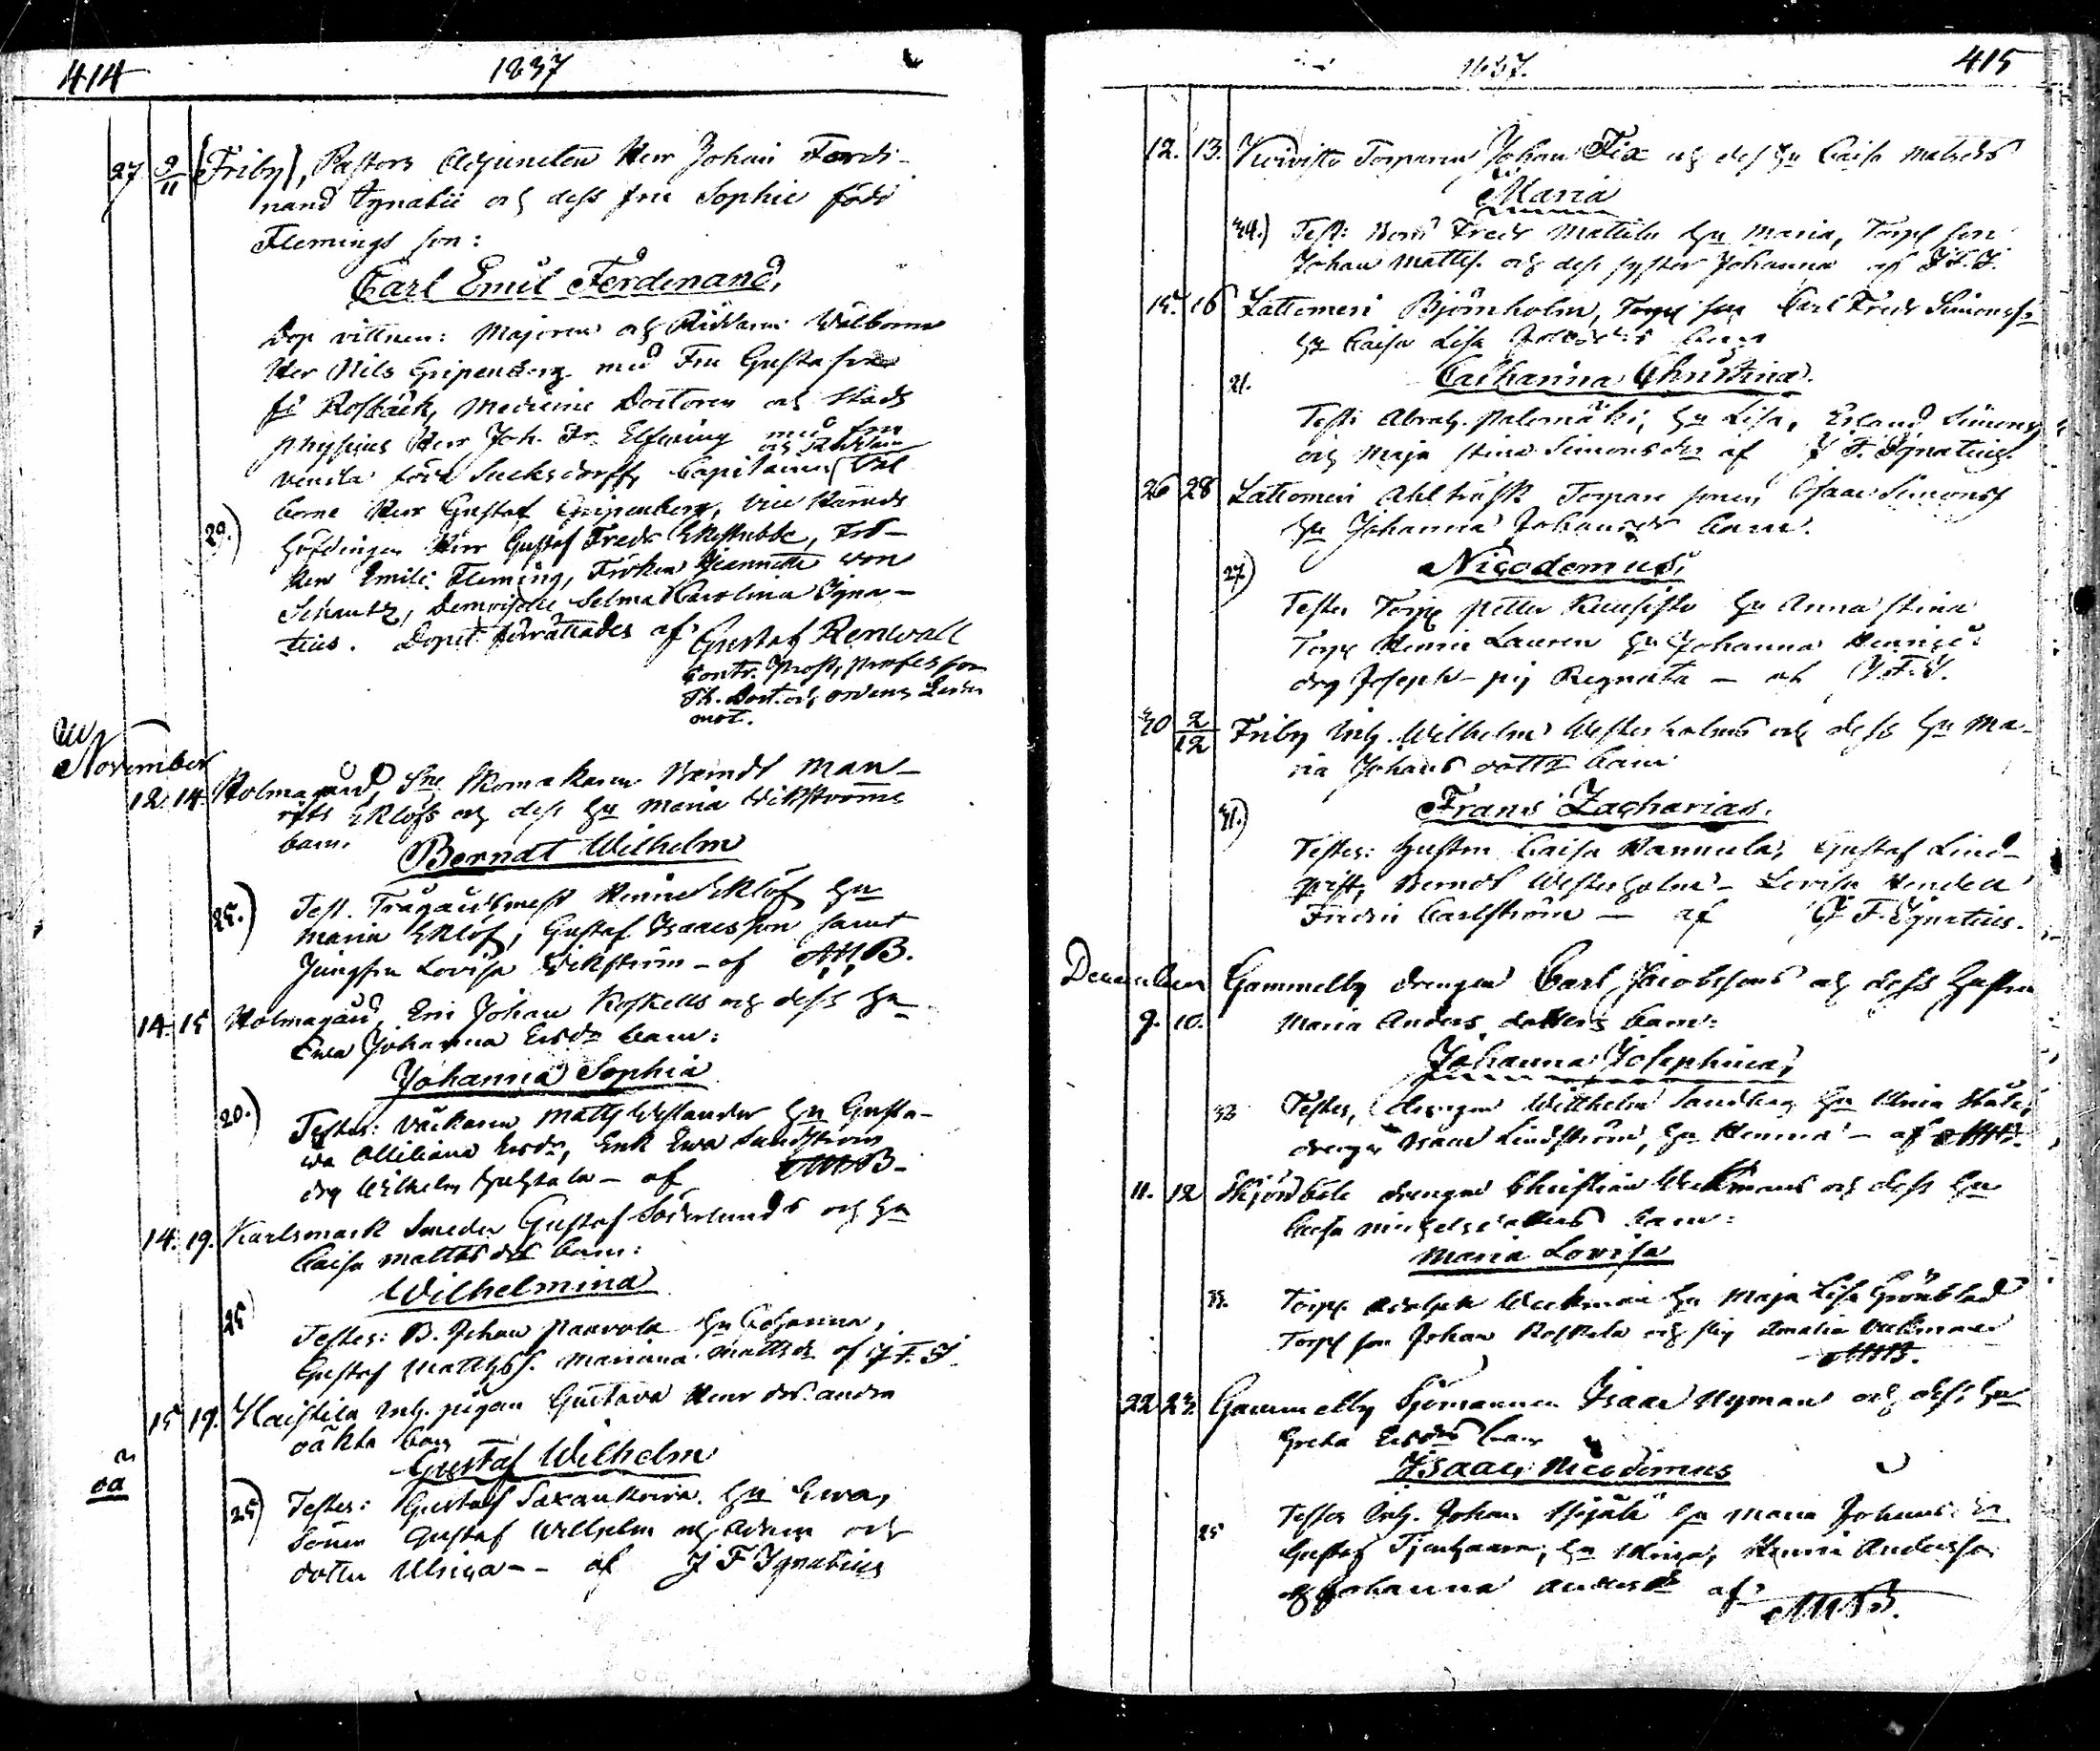 414
1837
27 9/11 (Friby), Pastors Adjuncten Herr Johan Ferdi-
nand Ignatii och dess fru Sophie född
Flemings son:
Carl Emil Ferdinand,
Dop vittnen: Majoren och Riddaren Wälborne
Herr Nils Gripenberg med Fru Gustafva
född Rosbäck, Medicine Doctoren och Stads
physicus Herr Joh. Fr. Elfving med fru
Vendla född Sucksdorff, Capitainen och Riddaren Väl
borne Herr Gustaf Gripenberg, Vice Härads
29.) höfdingen Herr Gustaf Fredr Ekestubbe, Frö-
ken Emilie Fleming, Fröken Jeannette von
Schantz, Demoiselle Selma Karolina Igna-
tius. Dopet förrättades af Gustaf Renvall
Contr. Prost, professor
Th. Doct. och ordens Leda
mot.
November
12. 14. Holmagård, Skomakaren Berndt Man-
Eklöfs och dess hu Maria Wikströms
barn.
Berndt Wilhelm
25.) Test. Trägårdsmest Henric Eklöf hu
Maria Eklöf, Gustaf Isaacsson samt
Jungfru Lovisa Wikström - af
14. 15 Holmagård, Johan Koskells och dess hu
Ewa Johanna Ersdr barn:
Johanna Sophia
20.) Testes: Matts Westander hu Gusta-
va Ersdr, Enk Ewa Sundström
drg Wilhelm - af
14. 19. Karlsmark Smeden Gustaf Söderlunds och hu
Caisa Mattsdr barn:
Wilhelmina
25 Testes: B. Johan Paavola hu Johanna,
Gustaf Mattss. Mariana Mattsdr af J. F. I.
15 19. Haistila Inh. pigan Gustava Henr dr. andra
oäkta barn
oä
Gustaf Wilhelm
25) Testes: Gustaf hu Ewa,
Sonen Gustaf Wilhelm och Adam och
dotter Ulrica - - af J F Ignatius
1837.
415
12. 13. Kuivisto Torparen Johan Fix och dess hu Caisa Matsdrs
Maria
34.) Test: Bond Fredr Mattila hu Maria, Torp son
Johan Mattss. och dess syster Johanna af J. F. I.
15. 16 Lattomeri Björnholm, Torp son Carl Fredr Simonss
hu Caisa Lisa barn
Catharina Christina.
21. Test: Abrah. Palomäki, hu Lisa, Erland Simons
och Maja Stina Simonsdr af J F. Ignatius.
26 28 Lattomeri Ahlträsk Torpare sonen Isaac Simonss
hu Johanna Johansdr barn.
Nicodemus,
27) Testes Torp Petter hu Anna Stina
Torp Henric Lauren hu Johanna
drg Joseph - pig Regnata - af J. F. I.
30 2/12 Friby Inh. Wilhelm Westerholms och dess hu Ma-
ria Johans dottr barn
Frans Zacharias.
31.) Testes: hustru Caisa Gustaf Lind-
qvist, Berndt Westerholm - Lovisa
Carlström - af J F. Ignatius.
December Gammelby drengen Carl Jacobssons och dess hustru
9. 10. Maria Anders dotters barn:
Johanna Josephina,
32 Testes, drengen Wilhelm Sandberg hu Ulrica
drengen Isaac Lindström, hu Henrica - af
11. 12 drengen Christian Weckmans och dess hu
Caisa Michelsdotters barn:
Maria Lovisa
33. Torp. Adolph Weckman hu Maja Lisa Grönblad
Torp son Johan Koskela och pig Amalia Weckman
22 23. Gammelby Sjömannen Isaac Nyman och dess hu
Greta Ersdrs barn
Isaac Nicodemus
25 Testes Inh. Johan hu Maria Johansdr
Gustaf hu Henric Andersson
och Johanna Andersdr af